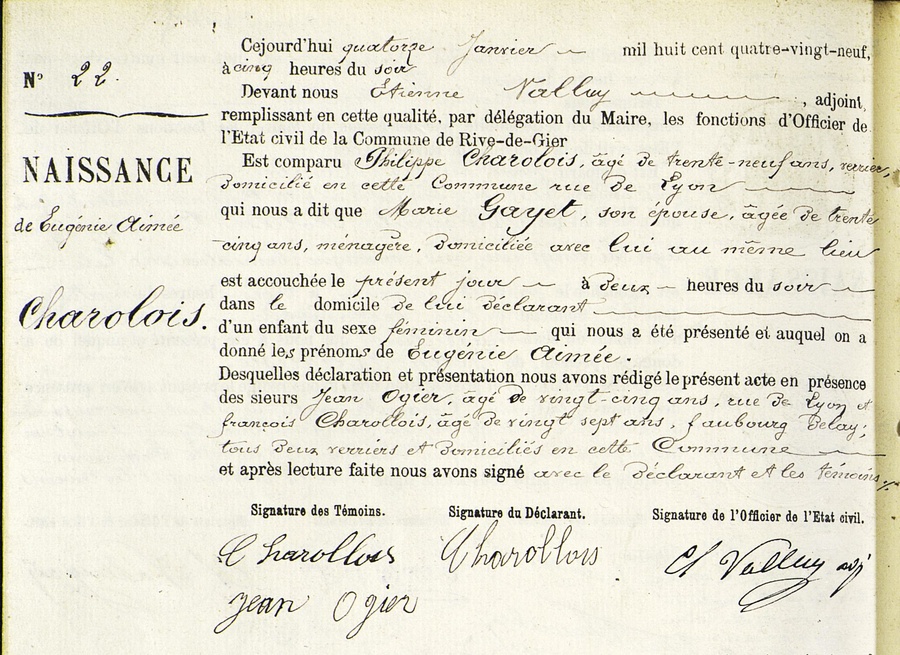 N° 22.
NAISSANCE
de Eugénie Aimée
Charolois.
Cejourd'hui quatorze Janvier mil huit cent quatre-vingt-neuf,
à cinq heures du soir
Devant nous Etienne Valluy, adjoint,
remplissant en cette qualité, par délégation du Maire, les fonctions d'Officier de
l'Etat civil de la Commune de Rive-de-Gier
Est comparu Philippe Charolois, âgé de trente-neuf ans, verrier,
domicilié en cette Commune rue de Lyon
qui nous a dit que Marie Gayet, son épouse, âgée de trente
cinq ans, ménagère, domiciliée avec lui au même lieu
est accouchée le présent jour à deux heures du soir
dans le domicile de lui déclarant
d'un enfant du sexe féminin qui nous a été présenté et auquel on a
donné les prénoms de Eugénie Aimée.
Desquelles déclaration et présentation nous avons rédigé le présent acte en présence
des sieurs Jean Ogier, âgé de vingt-cinq ans, rue de Lyon et
françois Charollois, âgé de vingt sept ans, faubourg Delay;
tous deux verriers et domiciliés en cette Commune
et après lecture faite nous avons signé avec le déclarant et les témoins
Signature des Témoins. Signature du Déclarant. Signature de l'Officier de l'Etat civil.
Charollois Charollois Valluy adj
Jean Ogier